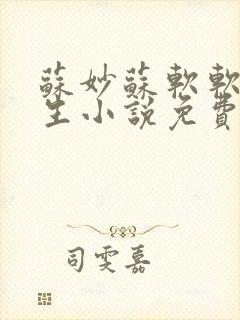 蘇妙蘇軟軟
生小說免費
司雯嘉